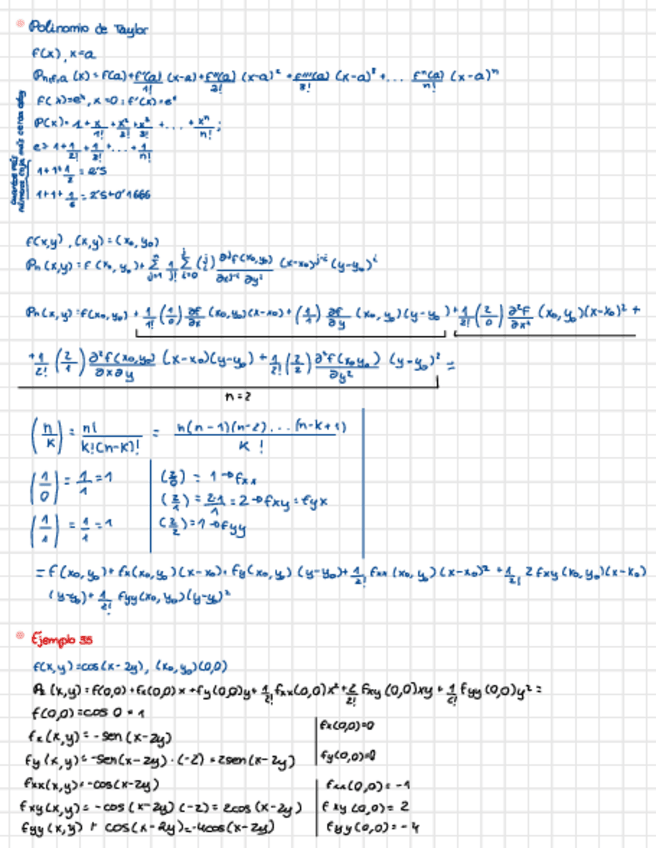 Polinomio de Taylor
f(x), x=a
Pn,f,a (x) = f(a) + f'(a)/1! (x-a) + f''(a)/2! (x-a)² + f'''(a)/3! (x-a)³ + ... fⁿ(a)/n! (x-a)ⁿ
f(x)=eˣ, x=0; f'(x)=eˣ
P(x)= 1 + x/1! + x²/2! + x³/3! + ... + xⁿ/n! ;
e> 1 + 1/2! + 1/3! + ... + 1/n!
1+1+1/2 = 2'5
1+1+1/6 = 2'5+0'1666
f(x,y), (x,y)=(x₀,y₀)
Pn (x,y) = f (x₀,y₀) + Σ 1/j! Σ (j i) ∂ʲf(x₀,y₀)/∂xʲ⁻ⁱ ∂yⁱ (x-x₀)ʲ⁻ⁱ (y-y₀)ⁱ
Pn (x,y) = f(x₀,y₀) + 1/1! (1 0) ∂f/∂x (x₀,y₀)(x-x₀) + (1 1) ∂f/∂y (x₀,y₀)(y-y₀) + 1/2! (2 0) ∂²f/∂x² (x₀,y₀)(x-x₀)² +
+ 1/2! (2 1) ∂²f(x₀,y₀)/∂x∂y (x-x₀)(y-y₀) + 1/2! (2 2) ∂²f(x₀,y₀)/∂y² (y-y₀)² =
n=2
(n k) = n!/k!(n-k)! = n(n-1)(n-2)...(n-k+1)/k!
(1 0) = 1/1 = 1
(1 1) = 1/1 = 1
(2 0) = 1 → fxx
(2 1) = 2·1/1 = 2 → fxy = fyx
(2 2) = 1 → fyy
= f(x₀,y₀) + fx(x₀,y₀)(x-x₀) + fy(x₀,y₀)(y-y₀) + 1/2! fxx(x₀,y₀)(x-x₀)² + 1/2! 2fxy(x₀,y₀)(x-x₀)
(y-y₀) + 1/2! fyy(x₀,y₀)(y-y₀)²
Ejemplo 35
f(x,y)=cos(x-2y), (x₀,y₀)(0,0)
P₂ (x,y) = f(0,0) + fx(0,0)x + fy(0,0)y + 1/2! fxx(0,0)x² + 2/2! fxy(0,0)xy + 1/2! fyy(0,0)y² =
f(0,0)=cos 0 = 1
fx(x,y) = -sen(x-2y)
fx(0,0)=0
fy(x,y) = -sen(x-2y)·(-2) = 2sen(x-2y)
fy(0,0)=0
fxx(x,y) = -cos(x-2y)
fxx(0,0) = -1
fxy(x,y) = -cos(x-2y)(-2) = 2cos(x-2y)
fxy(0,0) = 2
fyy(x,y) + cos(x-2y) = -4cos(x-2y)
fyy(0,0) = -4